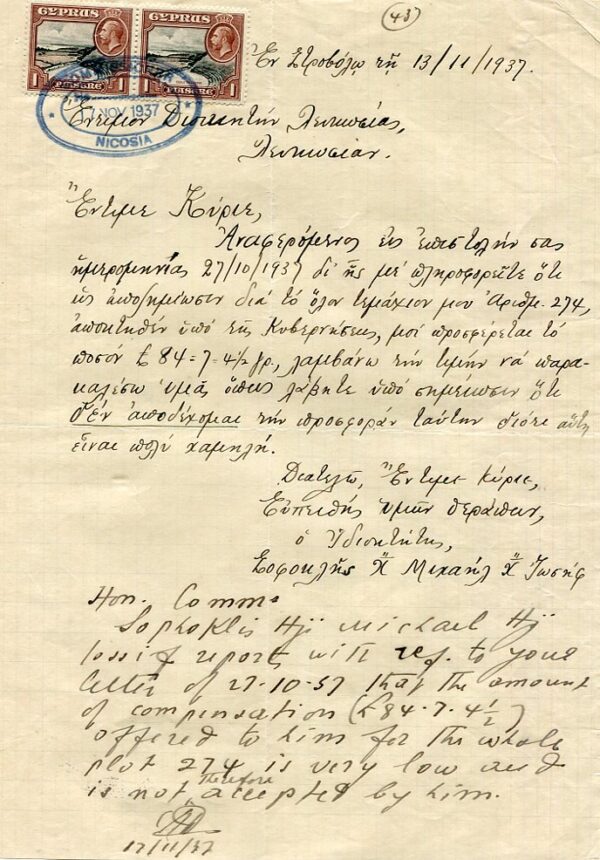 (437)
CYPRUS CYPRUS
1 PIASTRE 1 1 PIASTRE 1
COMMISSIONER
17 NOV 1937
NICOSIA
Ἐν Στροβόλῳ τῇ 13/11/1937.
Ἔντιμον Διοικητὴν Λευκωσίας,
Λευκωσίαν.
Ἔντιμε Κύριε,
Ἀναφερόμενος εἰς ἐπιστολήν σας
ἡμερομηνίας 27/10/1937 δι' ἧς μὲ πληροφορεῖτε ὅτι
ὡς ἀποζημίωσιν διὰ τὸ ὅλον τεμάχιον μου Ἀριθμ. 274,
ἀποκτηθὲν ὑπὸ τῆς Κυβερνήσεως, μοὶ προσφέρεται τὸ
ποσόν £ 84=7=4½ γρ, λαμβάνω τὴν τιμὴν νὰ παρα-
καλέσω ὑμᾶς ὅπως λάβητε ὑπὸ σημείωσιν ὅτι
δὲν ἀποδέχομαι τὴν προσφορὰν ταύτην διότι αὕτη
εἶναι πολὺ χαμηλή.
Διατελῶ, Ἔντιμε Κύριε,
Εὐπειθὴς ὑμῶν θεράπων,
ὁ Ἰδιοκτήτης,
Σοφοκλῆς Χ" Μιχαὴλ Χ" Ἰωσήφ
Hon. Commr
Sophoklis Hji Michael Hji
Iossif reports with ref. to your
letter of 27-10-37 that the amount
of compensation (£84-7-4½)
offered to him for the whole
plot 274 is very low and
is not therefore accepted by him.
17/11/37